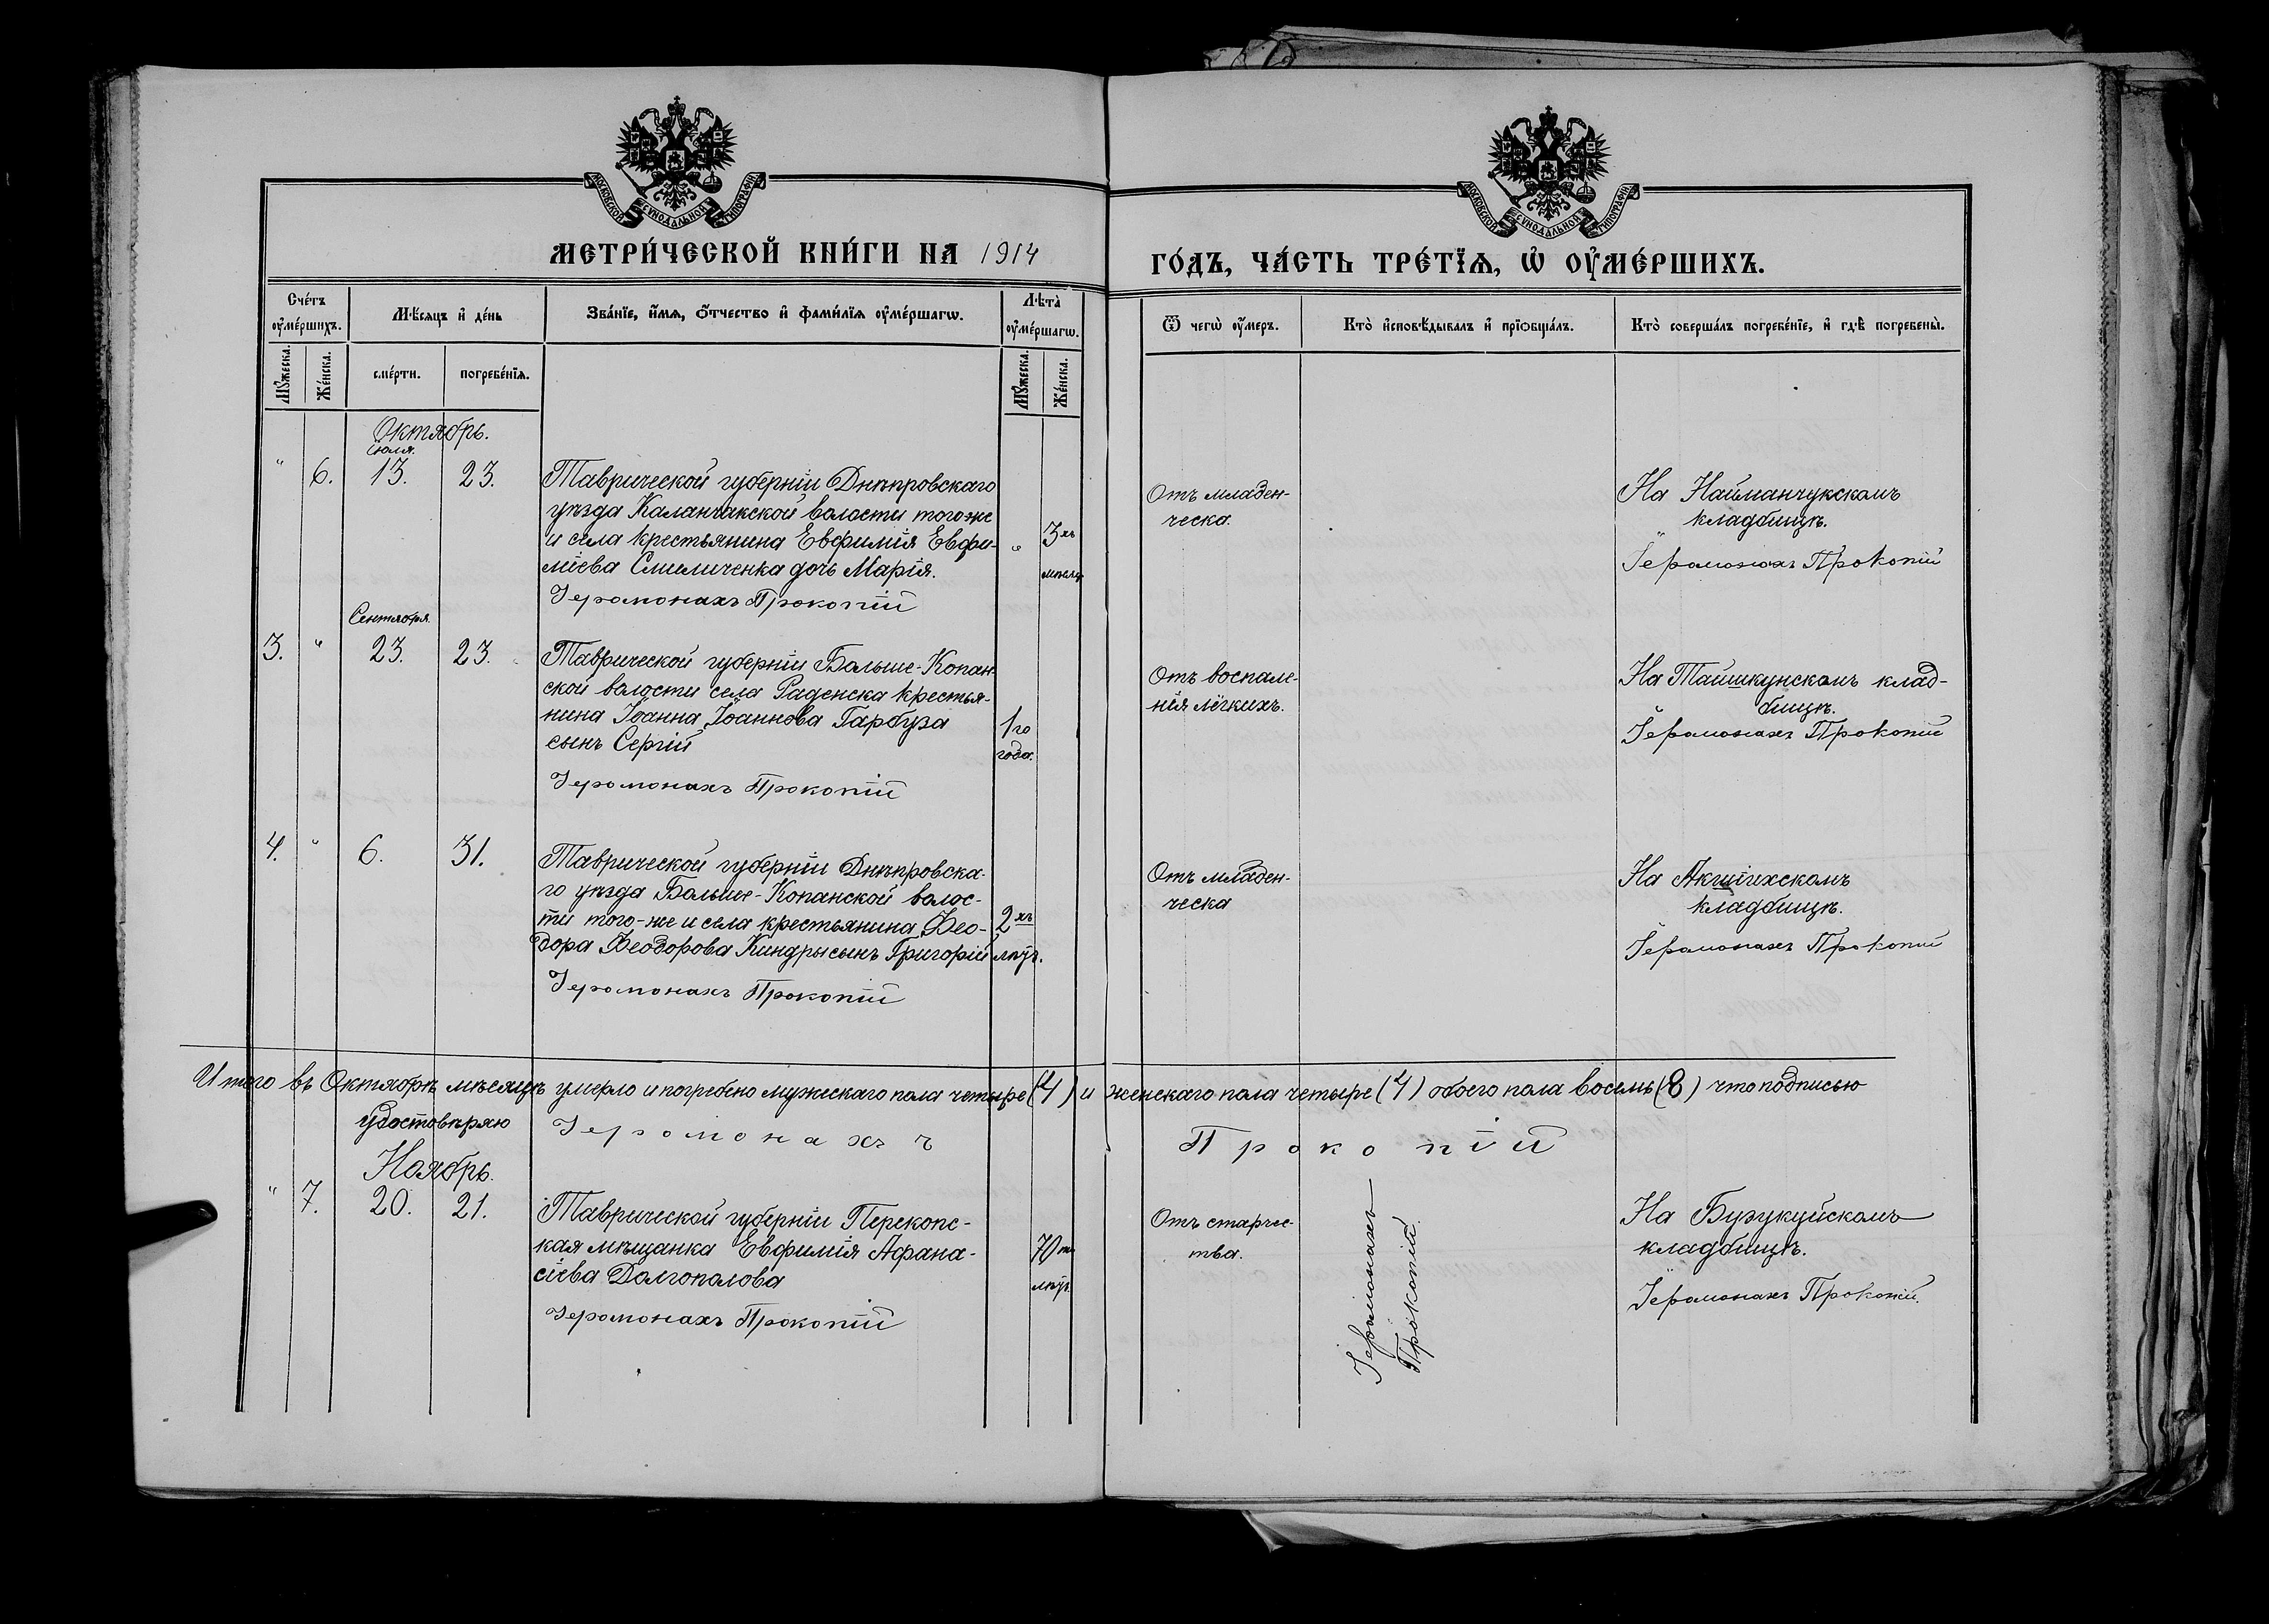 МОСКОВСКОЙ СѴНОДАЛЬНОЙ ТИПОГРАФІИ
МОСКОВСКОЙ СѴНОДАЛЬНОЙ ТИПОГРАФІИ
МЕТРИ́ЧЕСКОЙ КНИ́ГИ НА 1914
ГО́ДЪ, ЧА́СТЬ ТРЕ́ТЇѦ, Ѡ҆ ОУ҆МЕ́РШИХЪ.
Сче́тъ оу҆ме́ршихъ.
Мѣ́сяцъ и҆ де́нь
Зва́нїе, и҆́мѧ, ѻ҆́тчество и҆ фами́лїѧ оу҆ме́ршагѡ.
Лѣ́та оу҆ме́ршагѡ.
Ѿ чегѡ̀ оу҆́меръ.
Кто̀ и҆сповѣ́дывалъ и҆ прїѻбща́лъ.
Кто̀ соверша́лъ погребе́нїе, и҆ гдѣ̀ погребены̀.
Мꙋ́жеска.
Же́нска.
сме́рти.
погребе́нїѧ.
Мꙋ́жеска.
Же́нска.
Октябрь.
Іюля.
" 6. 13. 23. Таврической губерніи Днѣпровскаго
уѣзда Каланчакской волости того-же
и села крестьянина Евфимія Евфи-
міева Смиличенка дочь Марія.
Іеромонахъ Прокопій
" 3хъ
мѣсяц
Отъ младен-
ческа.
На Найманчукскомъ
кладбищѣ.
Іеромонахъ Прокопій
Сентября.
3. " 23. 23. Таврической губерніи Больше-Копан-
ской волости села Раденска крестья-
нина Іоанна Іоаннова Гарбуза
сынъ Сергій
Іеромонахъ Прокопій
1го
года.
Отъ воспале-
нія лёгкихъ.
На Ташкунскомъ клад-
бищѣ.
Іеромонахъ Прокопій
4. " 6. 31. Таврической губерніи Днѣпровска-
го уѣзда Больше-Копанской волос-
ти того-же и села крестьянина Ѳео-
дора Ѳеодорова Киндры сынъ Григорій
Іеромонахъ Прокопій
2хъ
лѣтъ.
Отъ младен-
ческа
На Акшихскомъ
кладбищѣ.
Іеромонахъ Прокопій
Итого въ Октябрѣ мѣсяцѣ умерло и погребено мужескаго пола четыре (4) и женскаго пола четыре (4) обоего пола восемь (8) что подписью
удостовѣряю Іеромонахъ Прокопій
Ноябрь.
" 7. 20. 21. Таврической губерніи Перекопс-
кая мѣщанка Евфимія Афана-
сіева Долгополова
Іеромонахъ Прокопій
70ти
лѣтъ.
Отъ старчес-
тва.
Іеромонахъ
Прокопій.
На Бузукуйскомъ
кладбищѣ.
Іеромонахъ Прокопій.